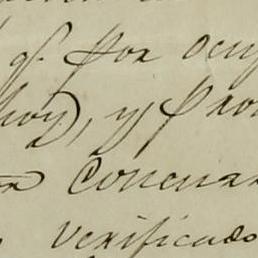 q.e por ocup
hoy), y pro
Concur
verificado